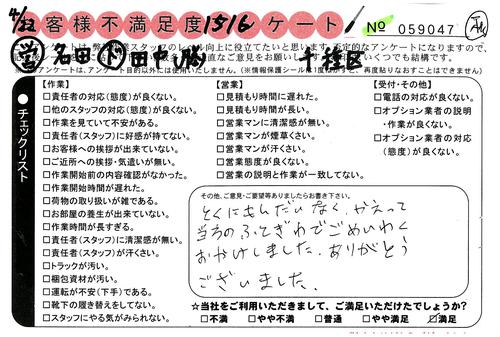 4/22 お客様不満足度1516アンケート! No 059047
当 名田 助 田中(勝) 千種区
このアンケートは、弊社スタッフのレベル向上に役立てたいと思います。否定的なアンケートになりますので、
※アンケートは、アンケート目的以外には使用いたしません。(※情報保護シール
●チェックリスト
【作業】
□責任者の対応(態度)が良くない。
□他のスタッフの対応(態度)が良くない。
□作業を見ていて不安がある。
□責任者(スタッフ)に好感が持てない。
□お客様への挨拶が出来ていない。
□ご近所への挨拶・気遣いが無い。
□作業開始前の内容確認がなかった。
□作業開始時間が遅れた。
□荷物の取り扱いが雑である。
□お部屋の養生が出来ていない。
□作業時間が長すぎる。
□責任者(スタッフ)に清潔感が無い。
□責任者(スタッフ)が汗くさい。
□トラックが汚い。
□梱包資材が汚い。
□運転が不安(下手)である。
□靴下の履き替えをしてない。
□スタッフにやる気がみられない。
【営業】
□見積もり時間に遅れた。
□見積もり時間が長い。
□営業マンに清潔感が無い。
□営業マンが煙草くさい。
□営業マンが汗くさい。
□営業態度が良くない。
□営業の説明と作業が一致してない。
【受付・その他】
□電話の対応が良くない。
□オプション業者の説明
・作業が良くない。
□オプション業者の対応
(態度)が良くない。
その他、ご意見・ご要望等ありましたらお書き下さい。
とくにもんだいなく、かえって
当方のふてぎわでごめいわく
おかけしました。ありがとう
ございました。
☆当社をご利用いただきまして、ご満足いただけたでしょうか?
□不満 □やや不満 □普通 □やや満足 ☑満足